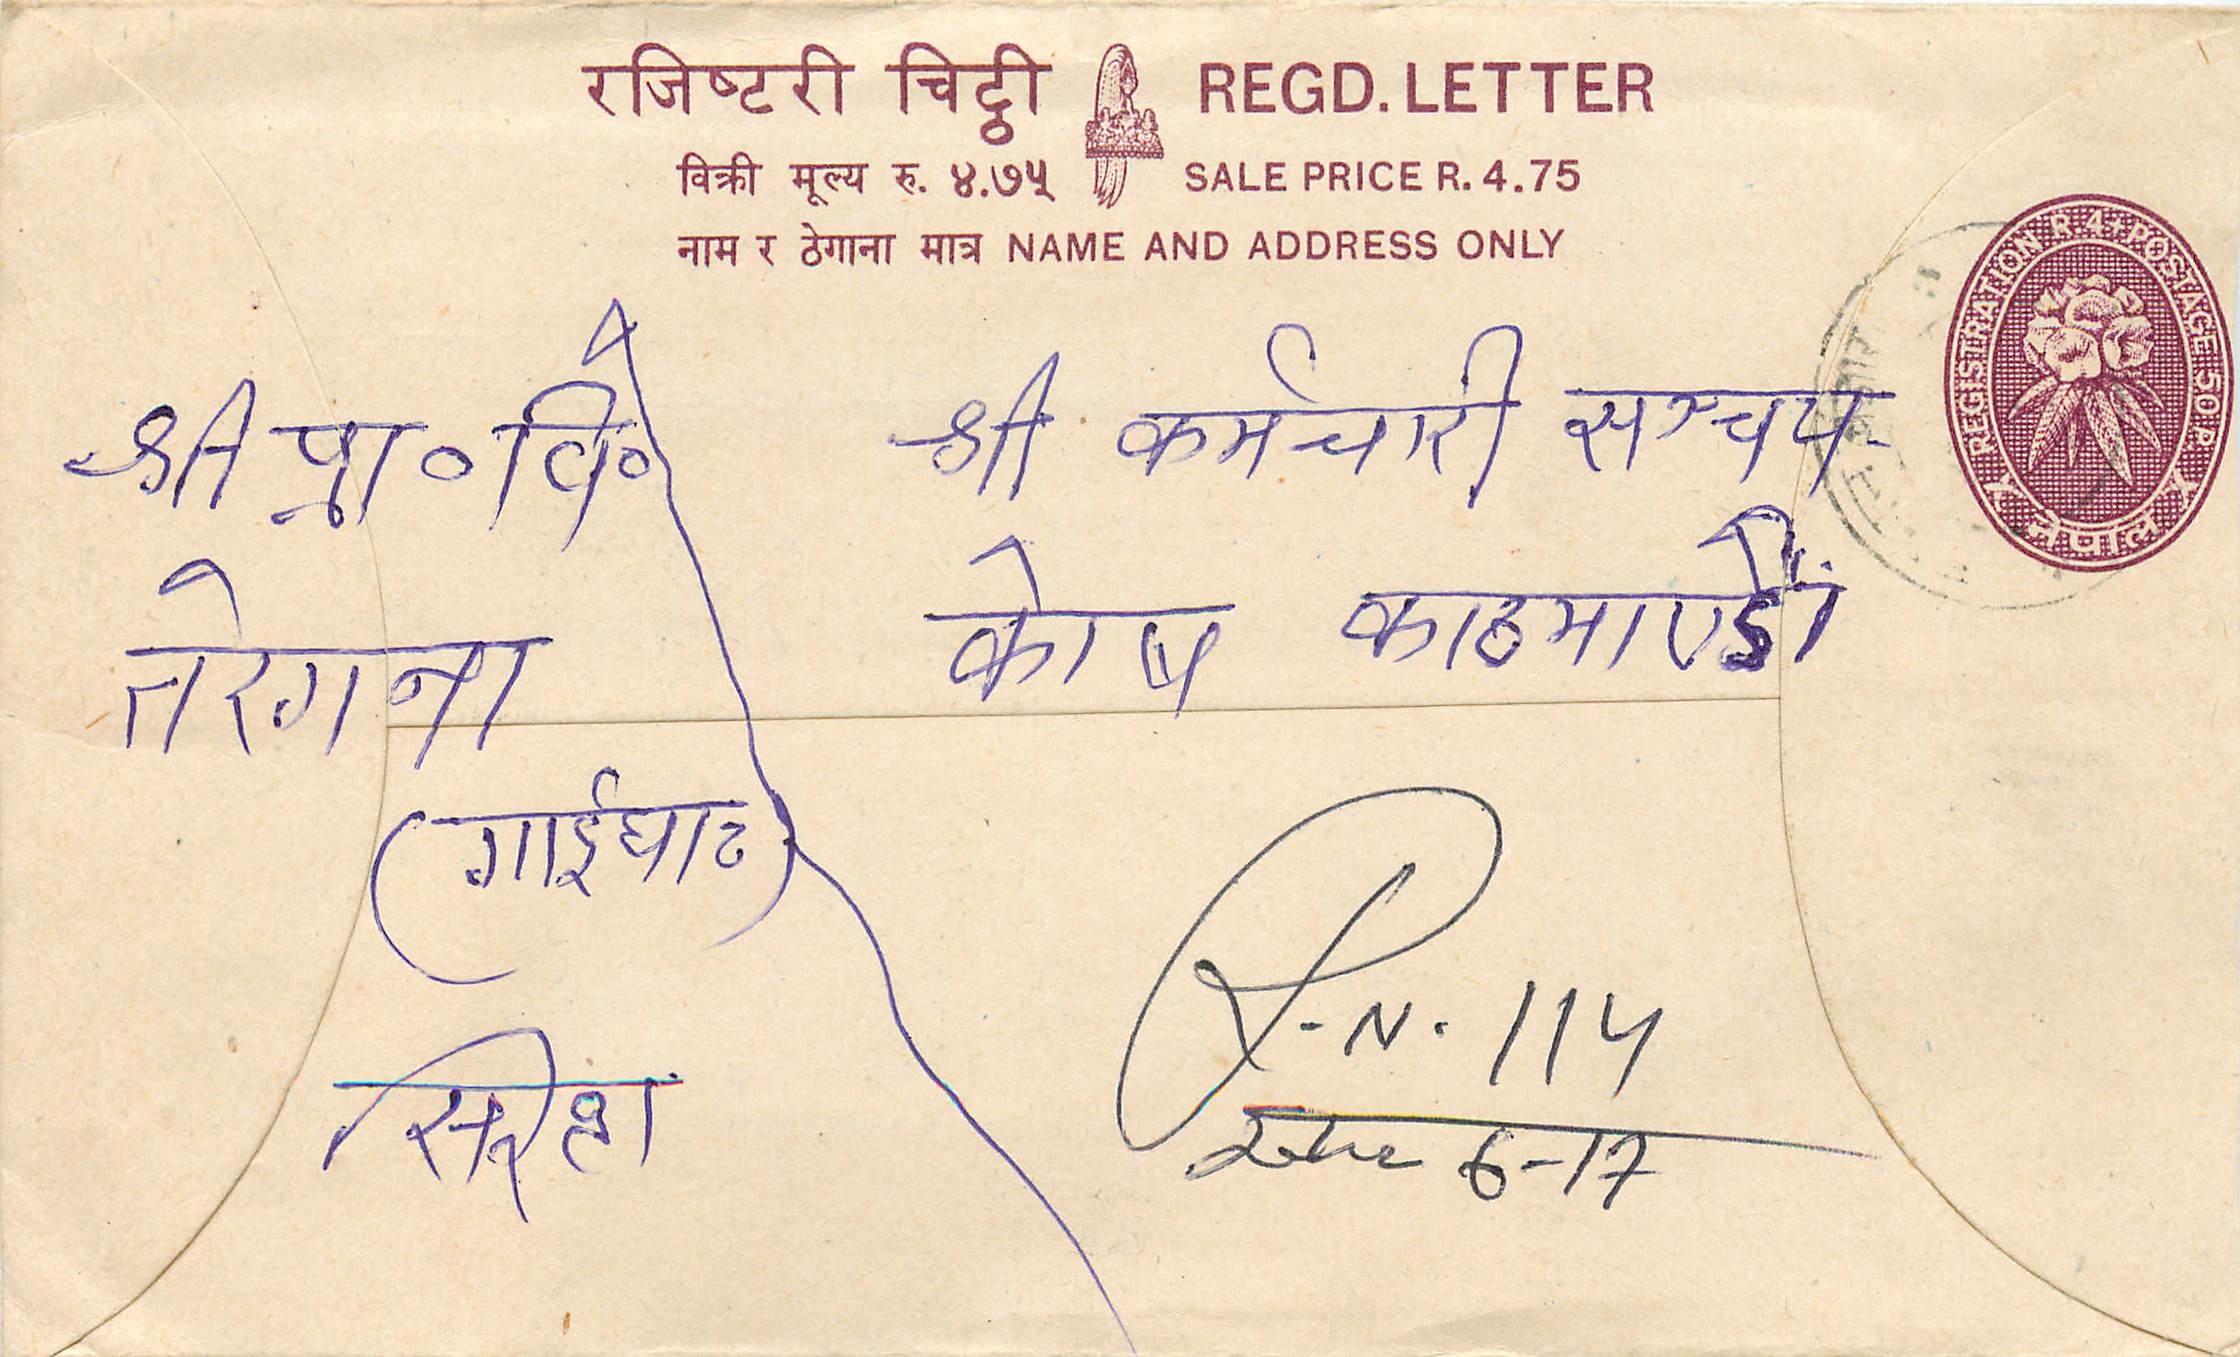 रजिष्टरी चिट्ठी REGD. LETTER
विक्री मूल्य रु. ४.७५ SALE PRICE R. 4.75
नाम र ठेगाना मात्र NAME AND ADDRESS ONLY
REGISTRATION R 4+POSTAGE 50 P
नेपाल
श्री प्रा॰वि॰
तेरगना
(गाईघाट)
सिरहा
श्री कर्मचारी सञ्चय-
कोष काठमाण्डौं
R.N. 114
6-17